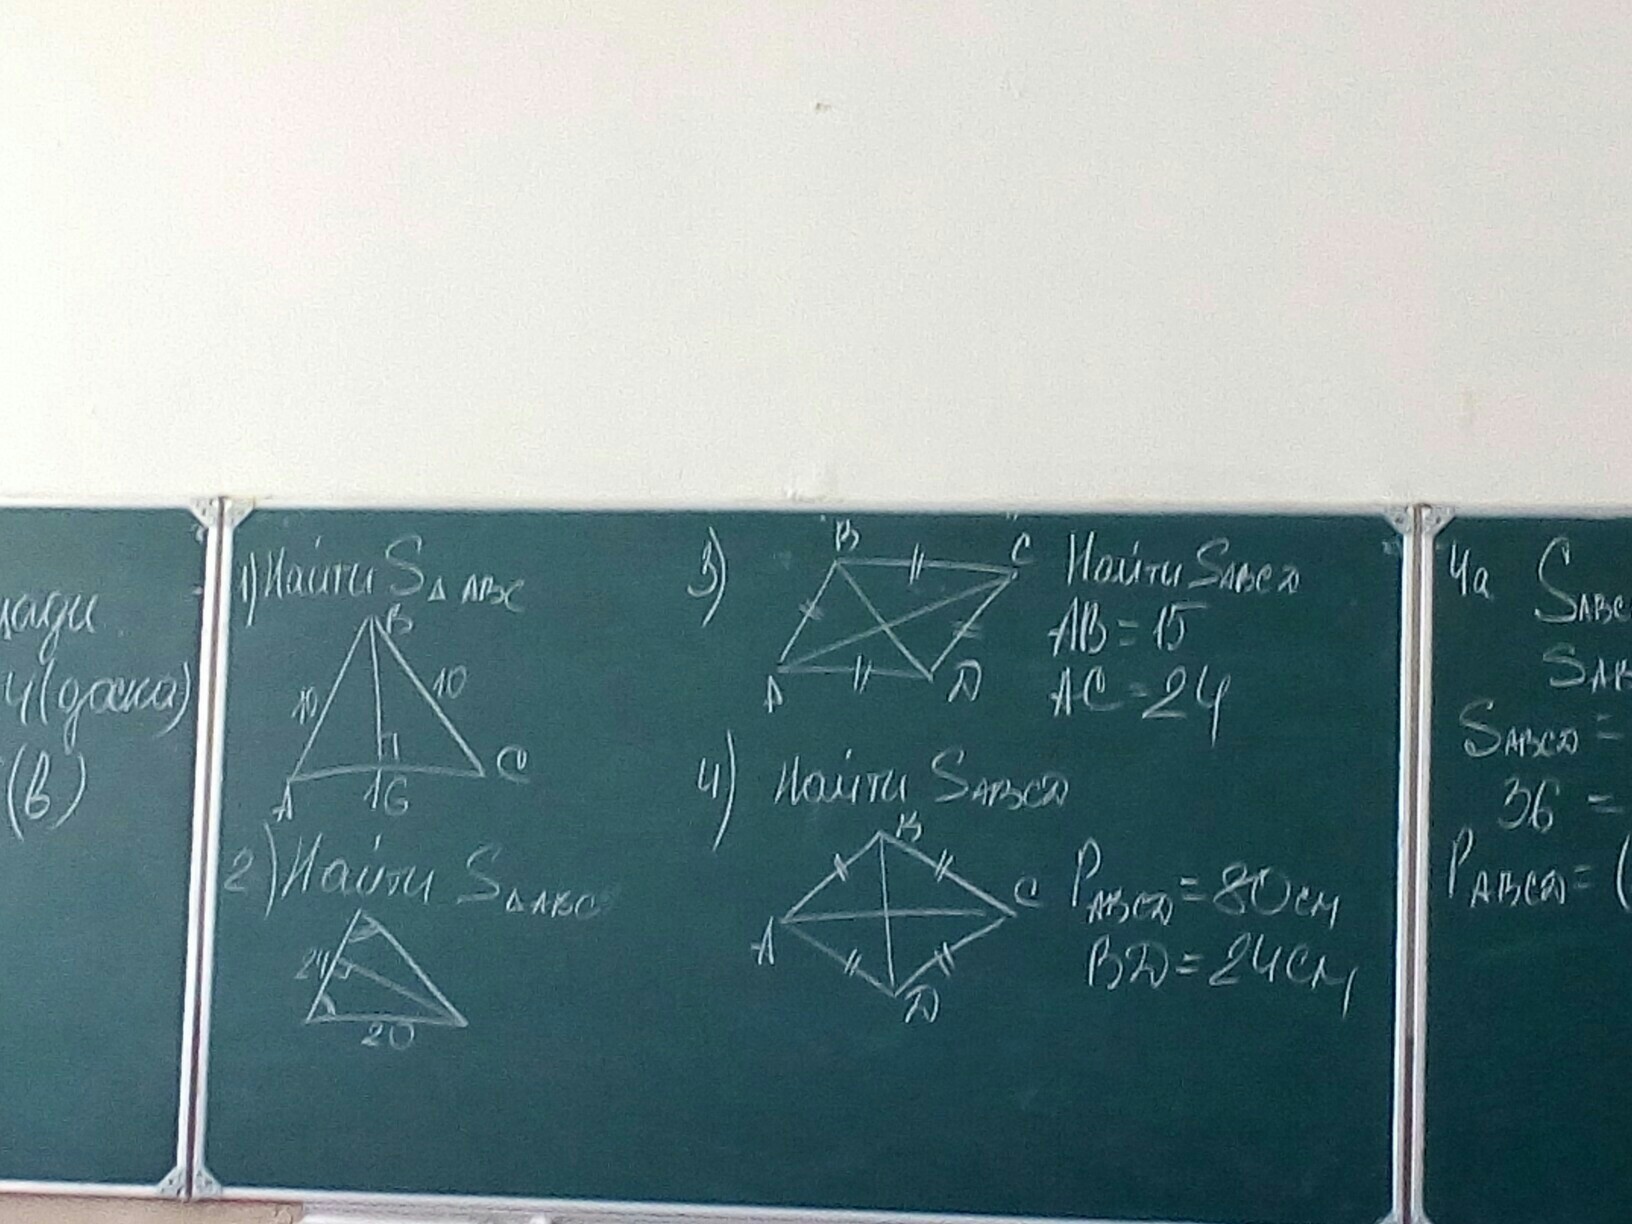 (доска)
(в)
1) Найти S△ABC
B
10
10
A
16
C
2) Найти S△ABC
24
20
3)
B
C
A
D
Найти SABCD
AB = 15
AC = 24
4) Найти SABCD
B
A
C
D
PABCD = 80 см
BD = 24 см
4а
SABCD =
36 =
PABCD = (